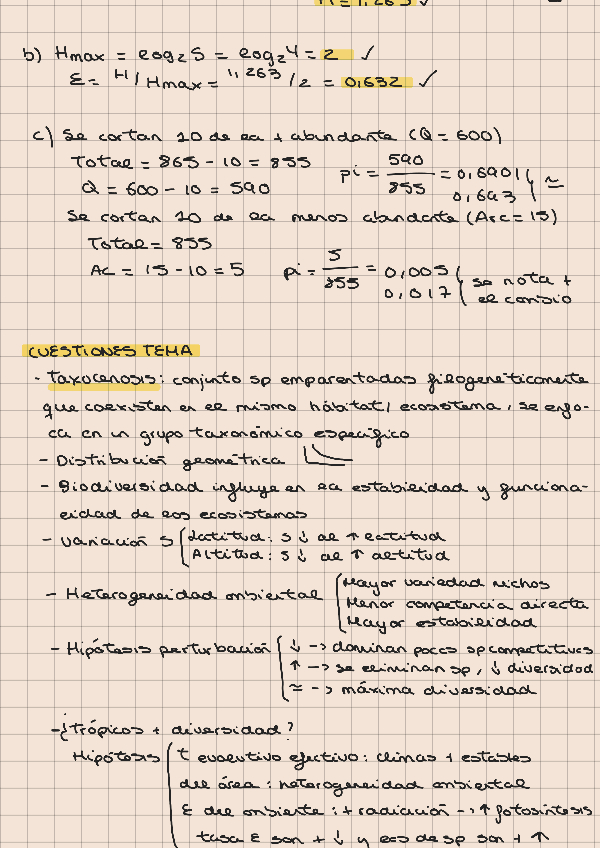 H = 1,263 ✓
b) Hmax = log₂S = log₂4 = 2 ✓
E = H / Hmax = 1,263 / 2 = 0,632 ✓
c) Se cortan 10 de la + abundante (Q = 600)
Total = 865 - 10 = 855
Q = 600 - 10 = 590
pi = 590 / 855 = 0,6901
0,693
≃
Se cortan 10 de la menos abundante (Arc = 15)
Total = 855
AC = 15 - 10 = 5
pi = 5 / 855 = 0,005
0,017
se nota +
el cambio
CUESTIONES TEMA
- Taxocenosis: conjunto sp emparentadas filogenéticamente
que coexisten en el mismo hábitat / ecosistema, se enfo-
ca en un grupo taxonómico específico
- Distribución geométrica
- Biodiversidad influye en la estabilidad y funciona-
lidad de los ecosistemas
- Variación S
Latitud: S ↓ al ↑ latitud
Altitud: S ↓ al ↑ altitud
- Heterogeneidad ambiental
Mayor variedad nichos
Menor competencia directa
Mayor estabilidad
- Hipótesis perturbación
↓ -> dominan pocas sp competitivas
↑ -> se eliminan sp, ↓ diversidad
≃ -> máxima diversidad
- ¿Trópicos + diversidad?
Hipótesis
t evolutivo efectivo: climas + estables
del área: heterogeneidad ambiental
E del ambiente: + radiación -> ↑ fotosíntesis
tasa E son + ↓ y de sp son + ↑